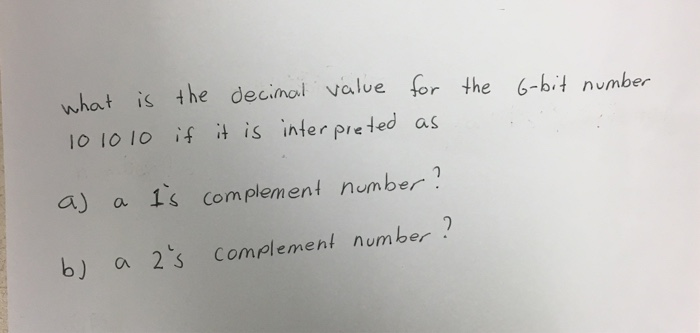 what is the decimal value for the 6-bit number
10 10 10 if it is interpreted as
a) a 1's complement number?
b) a 2's complement number?